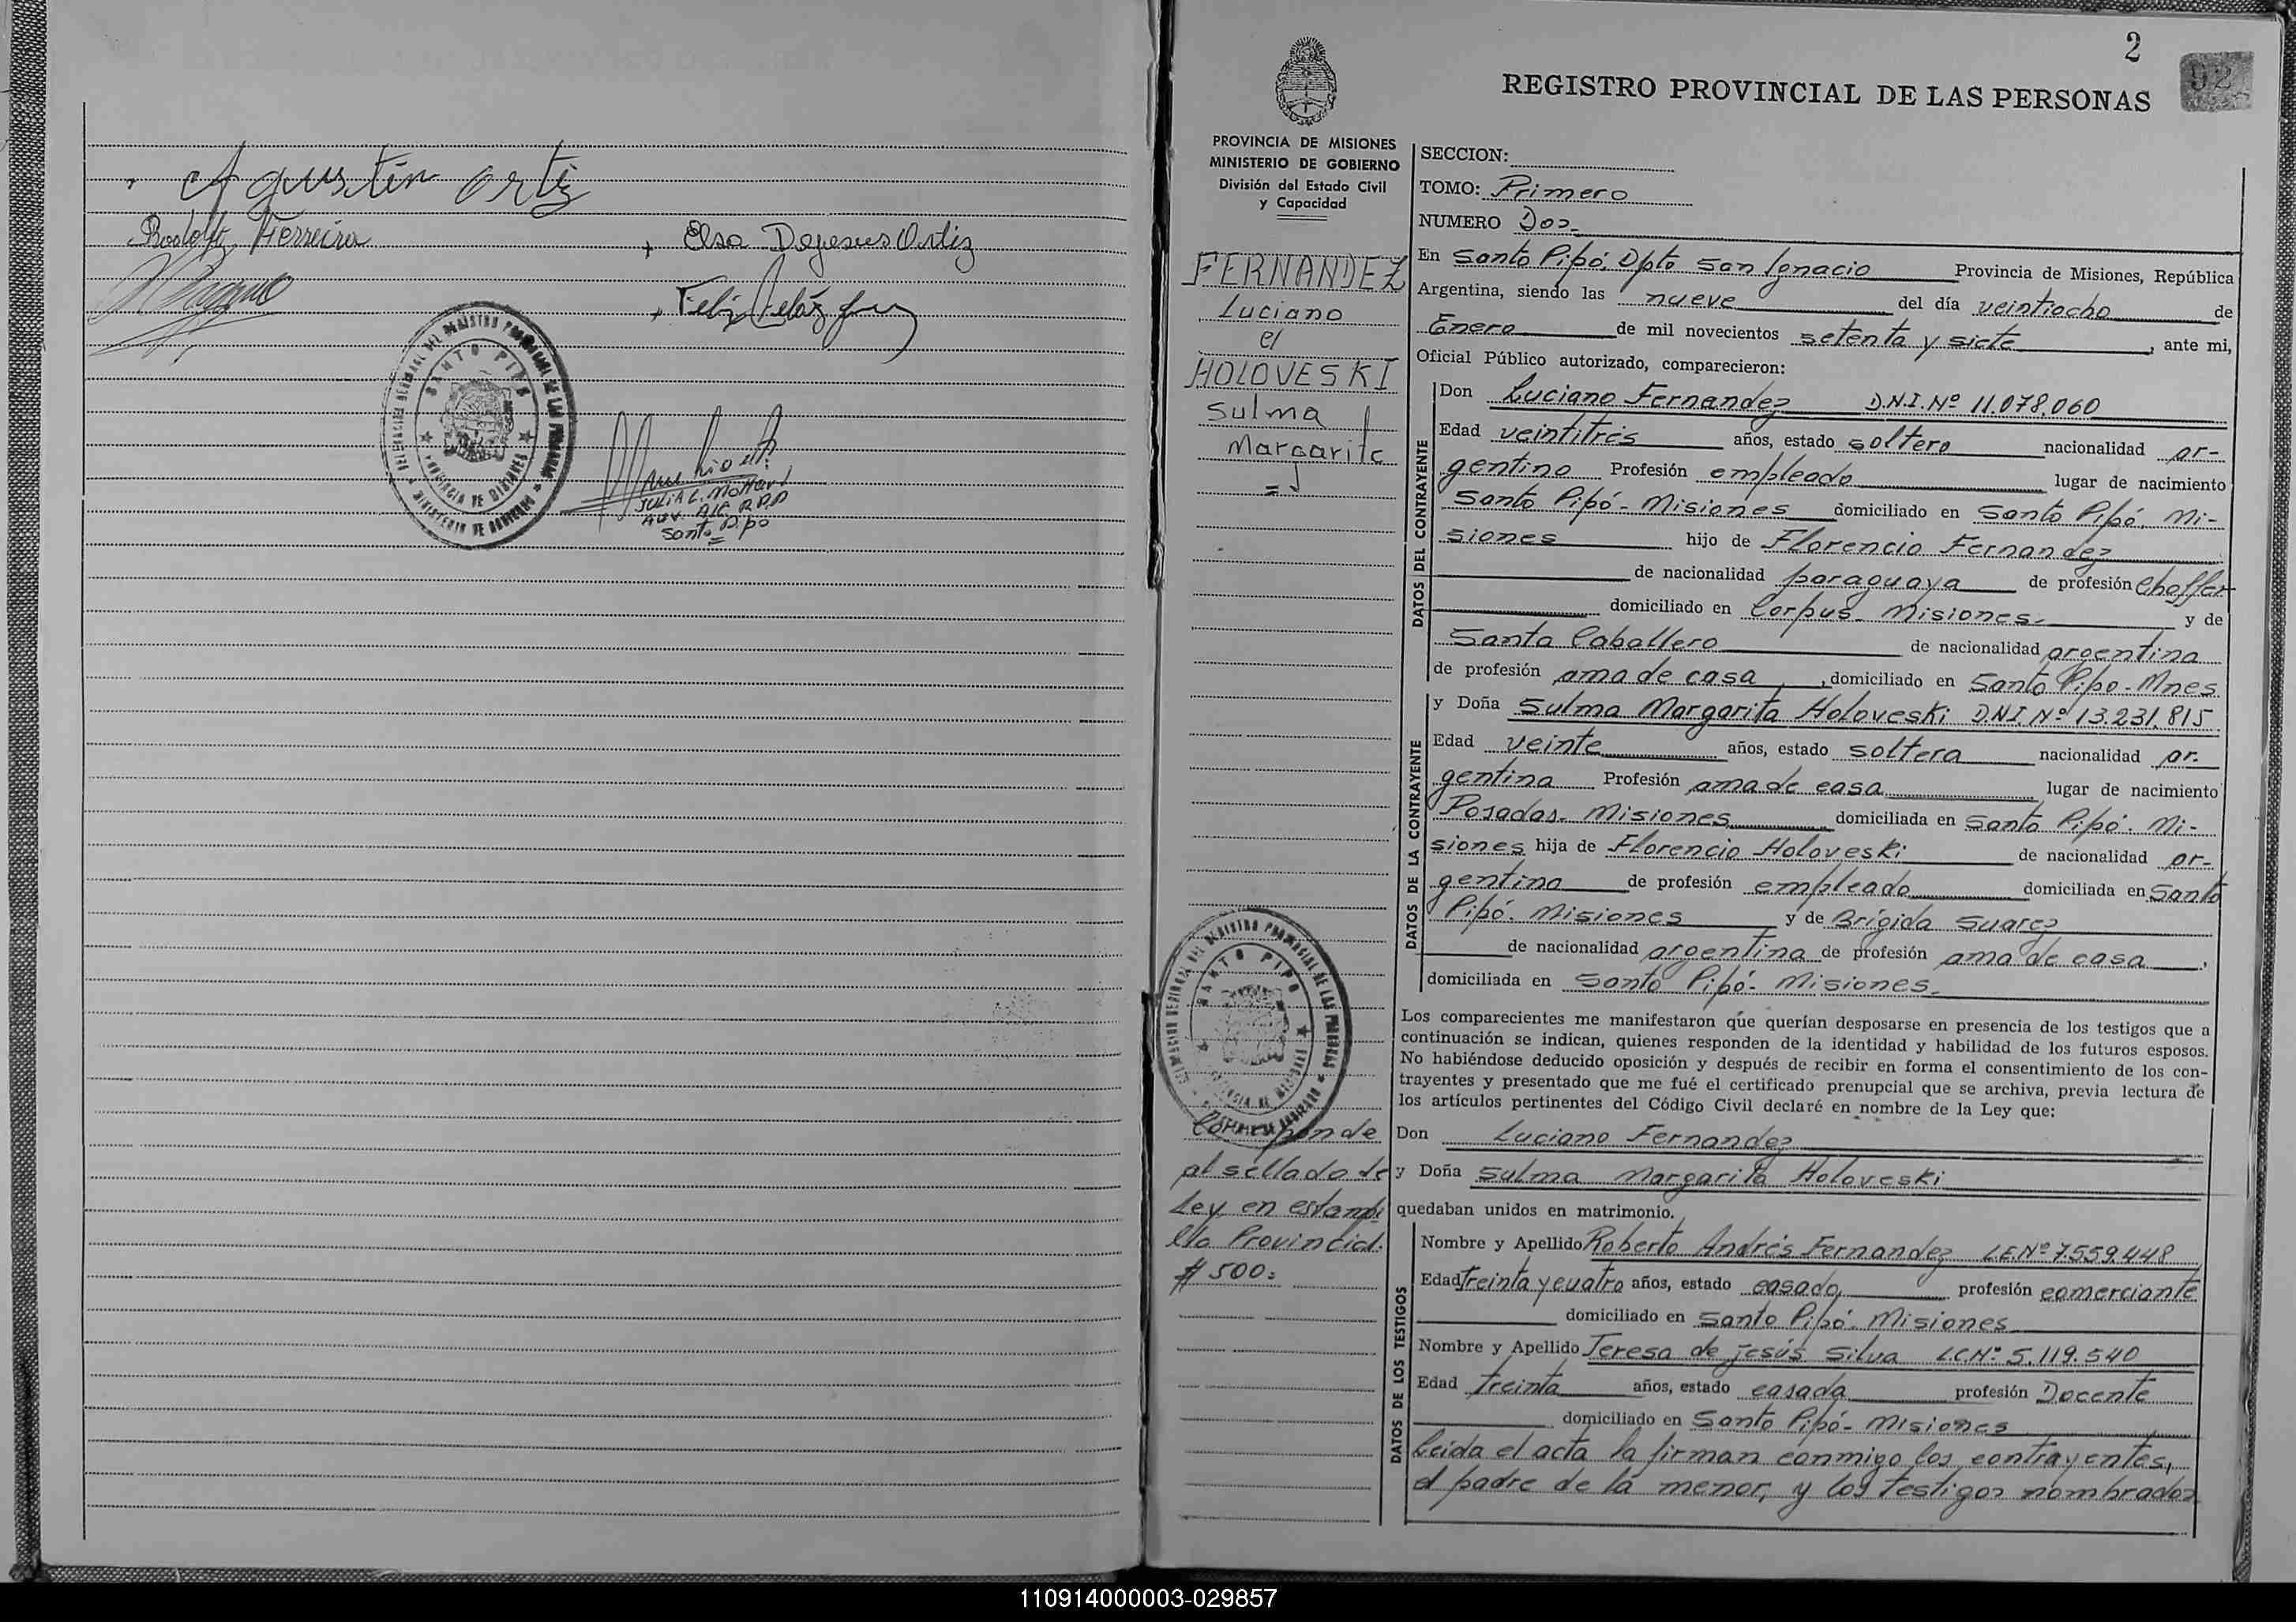 Agustin Ortiz
Rodolfo Ferreira
Elsa Dejesus Ortiz
Felix Velázquez
DELEGACION SECCIONAL DEL REGISTRO PROVINCIAL DE LAS PERSONAS
SANTO PIPO
PROVINCIA DE MISIONES
MINISTERIO DE GOBIERNO
JULIA L.
Santo Pipo
2
92
REGISTRO PROVINCIAL DE LAS PERSONAS
PROVINCIA DE MISIONES
MINISTERIO DE GOBIERNO
División del Estado Civil
y Capacidad
FERNANDEZ
Luciano
HOLOVESKI
Sulma
Margarita
SECCION:
TOMO: Primero
NUMERO Dos
En Santo Pipó, Dpto San Ignacio Provincia de Misiones, República
Argentina, siendo las nueve del día veintiocho de
Enero de mil novecientos setenta y siete, ante mi,
Oficial Público autorizado, comparecieron:
DATOS DEL CONTRAYENTE
Don Luciano Fernandez D.N.I. Nº 11.078.060
Edad veintitrés años, estado soltero nacionalidad ar-
gentino Profesión empleado lugar de nacimiento
Santo Pipó - Misiones domiciliado en Santo Pipó. Mi-
siones hijo de Florencio Fernandez
de nacionalidad paraguaya de profesión Choffer
domiciliado en Corpus - Misiones. y de
Santa Caballero de nacionalidad argentina
de profesión ama de casa, domiciliado en Santo Pipo - Mnes.
DATOS DE LA CONTRAYENTE
y Doña Sulma Margarita Holoveski D.N.I Nº 13.231.815
Edad veinte años, estado soltera nacionalidad ar-
gentina Profesión ama de casa lugar de nacimiento
Posadas - Misiones domiciliada en Santo Pipó. Mi-
siones hija de Florencio Holoveski de nacionalidad ar-
gentino de profesión empleado domiciliada en Santo
Pipó. Misiones y de Brígida Suarez
de nacionalidad argentina de profesión ama de casa,
domiciliada en Santo Pipó - Misiones.
Los comparecientes me manifestaron que querían desposarse en presencia de los testigos que a
continuación se indican, quienes responden de la identidad y habilidad de los futuros esposos.
No habiéndose deducido oposición y después de recibir en forma el consentimiento de los con-
trayentes y presentado que me fué el certificado prenupcial que se archiva, previa lectura de
los artículos pertinentes del Código Civil declaré en nombre de la Ley que:
Don Luciano Fernandez
y Doña Sulma Margarita Holoveski
quedaban unidos en matrimonio.
DELEGACION SECCIONAL DEL REGISTRO PROVINCIAL DE LAS PERSONAS
SANTO PIPO
PROVINCIA DE MISIONES
MINISTERIO DE GOBIERNO
Corresponde
al sellado de
Ley en estampi
lla Provincial.
$ 500=
DATOS DE LOS TESTIGOS
Nombre y Apellido Roberto Andrés Fernandez L.E. Nº 7.559.448
Edad treinta y cuatro años, estado casado, profesión comerciante
domiciliado en Santo Pipó. Misiones
Nombre y Apellido Teresa de jesús Silva L.C. Nº 5.119.540
Edad treinta años, estado casada profesión Docente
domiciliado en Santo Pipó - Misiones
Leida el acta la firman conmigo los contrayentes,
el padre de la menor, y los testigos nombrados
110914000003-029857